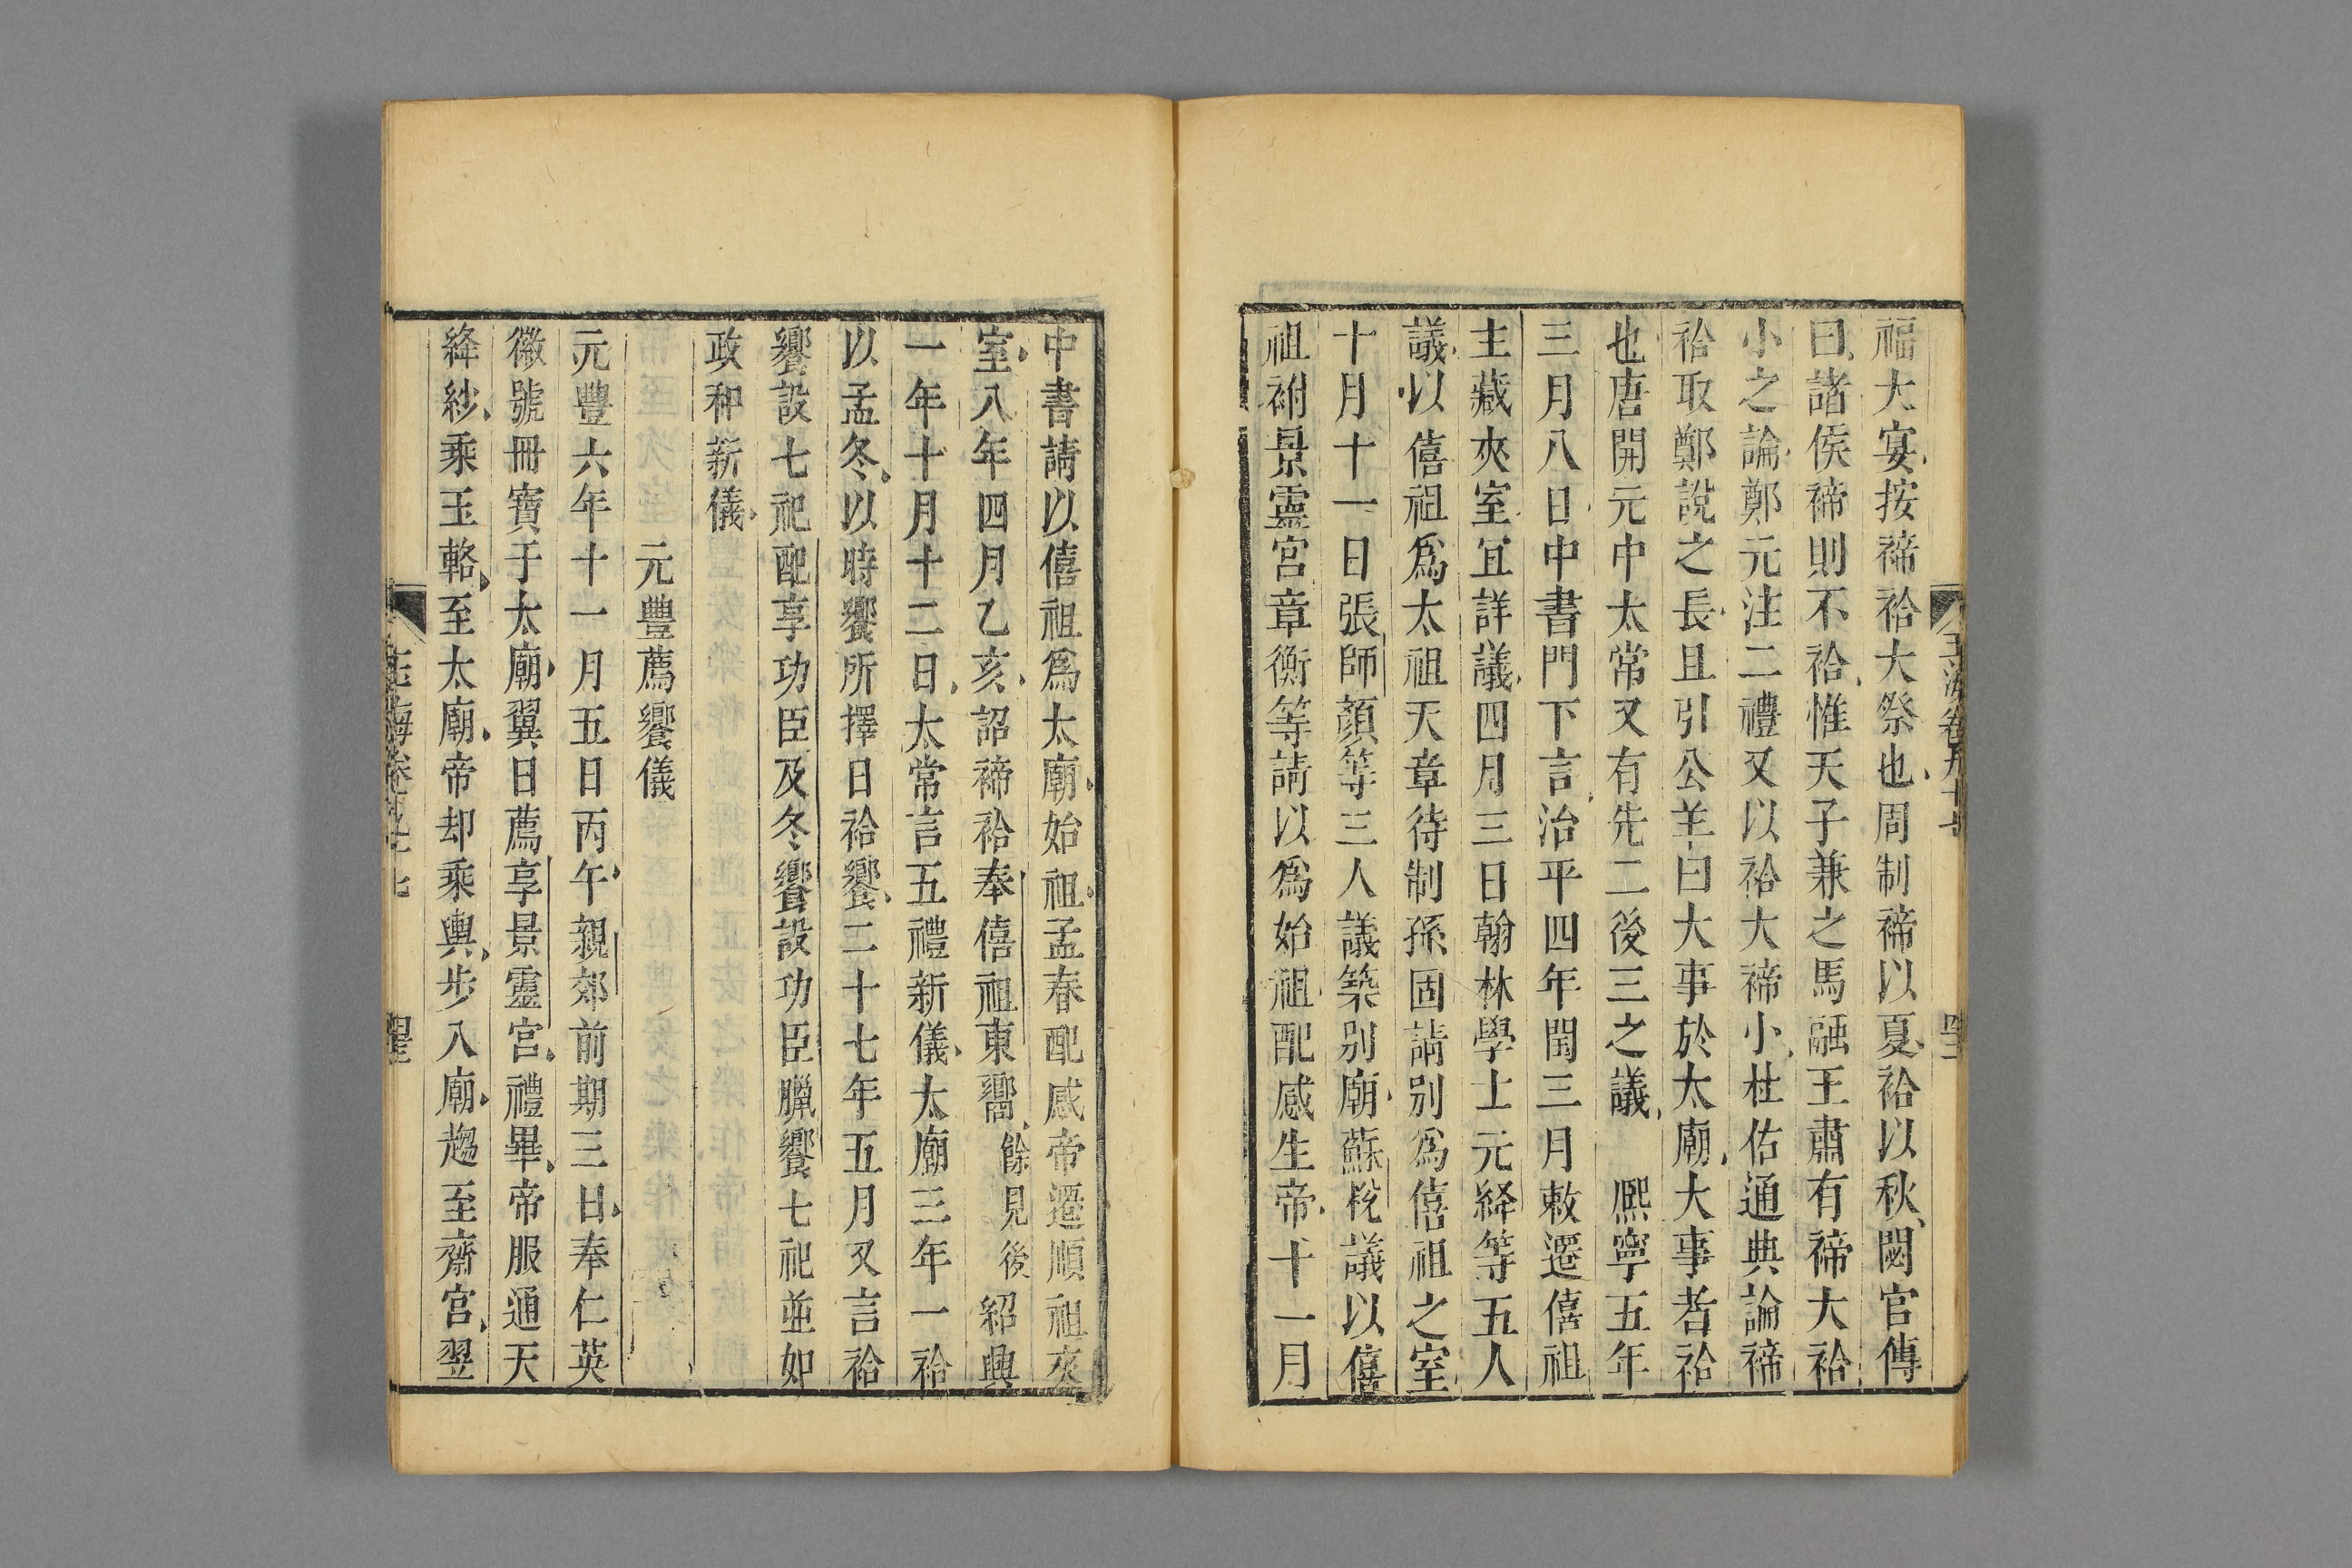 福大宴按禘祫大祭也周制禘以夏祫以秋閟官傳
曰諸侯禘則不祫惟天子兼之馬融王肅有禘大祫
小之論鄭元注二禮又以祫大禘小杜佑通典論禘
祫取鄭說之長且引公羊曰大事於太廟大事者祫
也唐開元中太常又有先二後三之議 熙寧五年
三月八日中書門下言治平四年閏三月敕遷僖祖
主藏夾室宜詳議四月三日翰林學士元絳等五人
議以僖祖爲太祖天章待制孫固請别爲僖祖之室
十月十一日張師顏等三人議築别廟蘇梲議以僖
祖祔景靈宮章衡等請以爲始祖配感生帝十一月
中書請以僖祖爲太廟始祖孟春配感帝遷順祖夾
室八年四月乙亥詔禘祫奉僖祖東嚮餘見後紹興
一年十月十二日太常言五禮新儀太廟三年一祫
以孟冬以時饗所擇日祫饗二十七年五月又言祫
饗設七祀配享功臣及冬饗設功臣臘饗七祀並如
政和新儀
元豐薦饗儀
元豐六年十一月五日丙午親郊前期三日奉仁英
徽號冊寶于太廟翼日薦享景靈宮禮畢帝服通天
絳紗乘玉輅至太廟帝却乘輿步入廟趨至齋宮翌